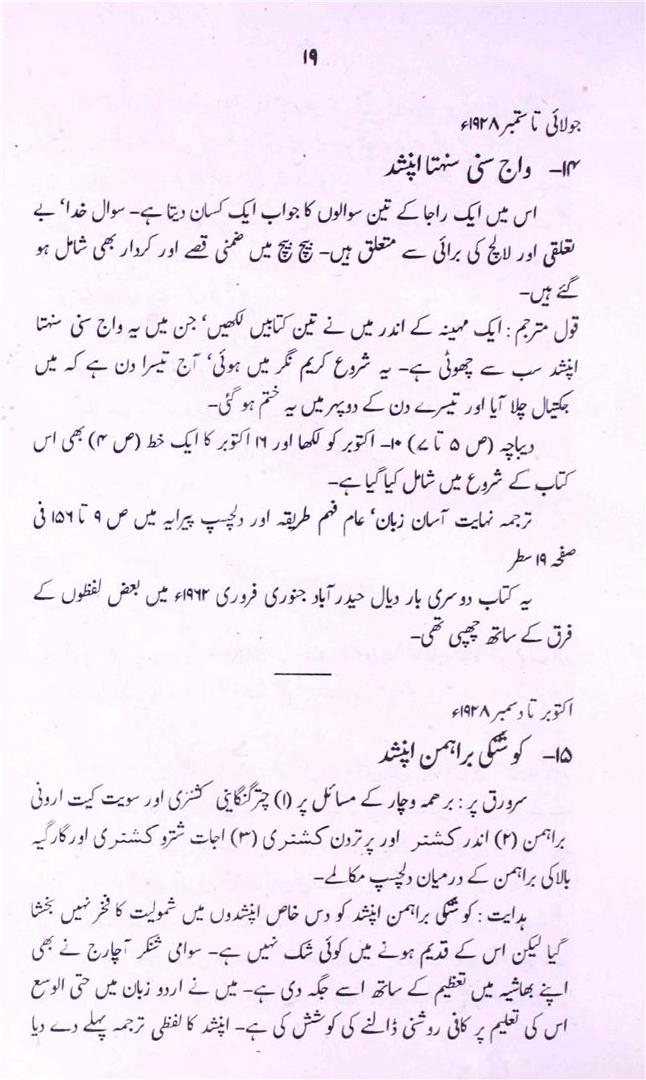 ۱۹
جولائی تا ستمبر ۱۹۲۸ء
۱۴- واج سنی سنہتا اپنشد
اس میں ایک راجا کے تین سوالوں کا جواب ایک کسان دیتا ہے۔ سوال خدا، بے
تعلقی اور لالچ کی برائی سے متعلق ہیں۔ بیچ بیچ میں ضمنی قصے اور کردار بھی شامل ہو
گئے ہیں۔
قول مترجم : ایک مہینہ کے اندر میں نے تین کتابیں لکھیں، جن میں یہ واج سنی سنہتا
اپنشد سب سے چھوٹی ہے۔ یہ شروع کریم نگر میں ہوئی، آج تیسرا دن ہے کہ میں
جکتیال چلا آیا اور تیسرے دن کے دوپہر میں یہ ختم ہو گئی۔
دیباچہ (ص ۵ تا ۷) ۱۰- اکتوبر کو لکھا اور ۱۶ اکتوبر کا ایک خط (ص ۴) بھی اس
کتاب کے شروع میں شامل کیا گیا ہے۔
ترجمہ نہایت آسان زبان، عام فہم طریقہ اور دلچسپ پیرایہ میں ص ۹ تا ۱۵۶ فی
صفحہ ۱۹ سطر
یہ کتاب دوسری بار دیال حیدر آباد جنوری فروری ۱۹۶۲ء میں بعض لفظوں کے
فرق کے ساتھ چھپی تھی۔
اکتوبر تا دسمبر ۱۹۲۸ء
۱۵- کوشکی براہمن اپنشد
سرورق پر : برھمہ وچار کے مسائل پر (۱) چترگنگاینی کشتری اور سویت کیت ارونی
براہمن (۲) اندر کشنر اور پرتردن کشنتری (۳) اجات شترو کشنتری اور گارگیہ
بالاکی براہمن کے درمیان دلچسپ مکالمے۔
ہدایت : کوشکی براہمن اپنشد کو دس خاص اپنشدوں میں شمولیت کا فخر نہیں بخشا
گیا لیکن اس کے قدیم ہونے میں کوئی شک نہیں ہے۔ سوامی شنکر آچارج نے بھی
اپنے بھاشیہ میں تعظیم کے ساتھ اسے جگہ دی ہے۔ میں نے اردو زبان میں حتی الوسع
اس کی تعلیم پر کافی روشنی ڈالنے کی کوشش کی ہے۔ اپنشد کا لفظی ترجمہ پہلے دے دیا